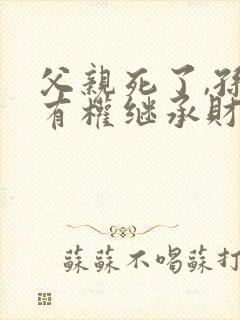 父親死了,孫
有權继承財
蘇蘇不喝蘇打